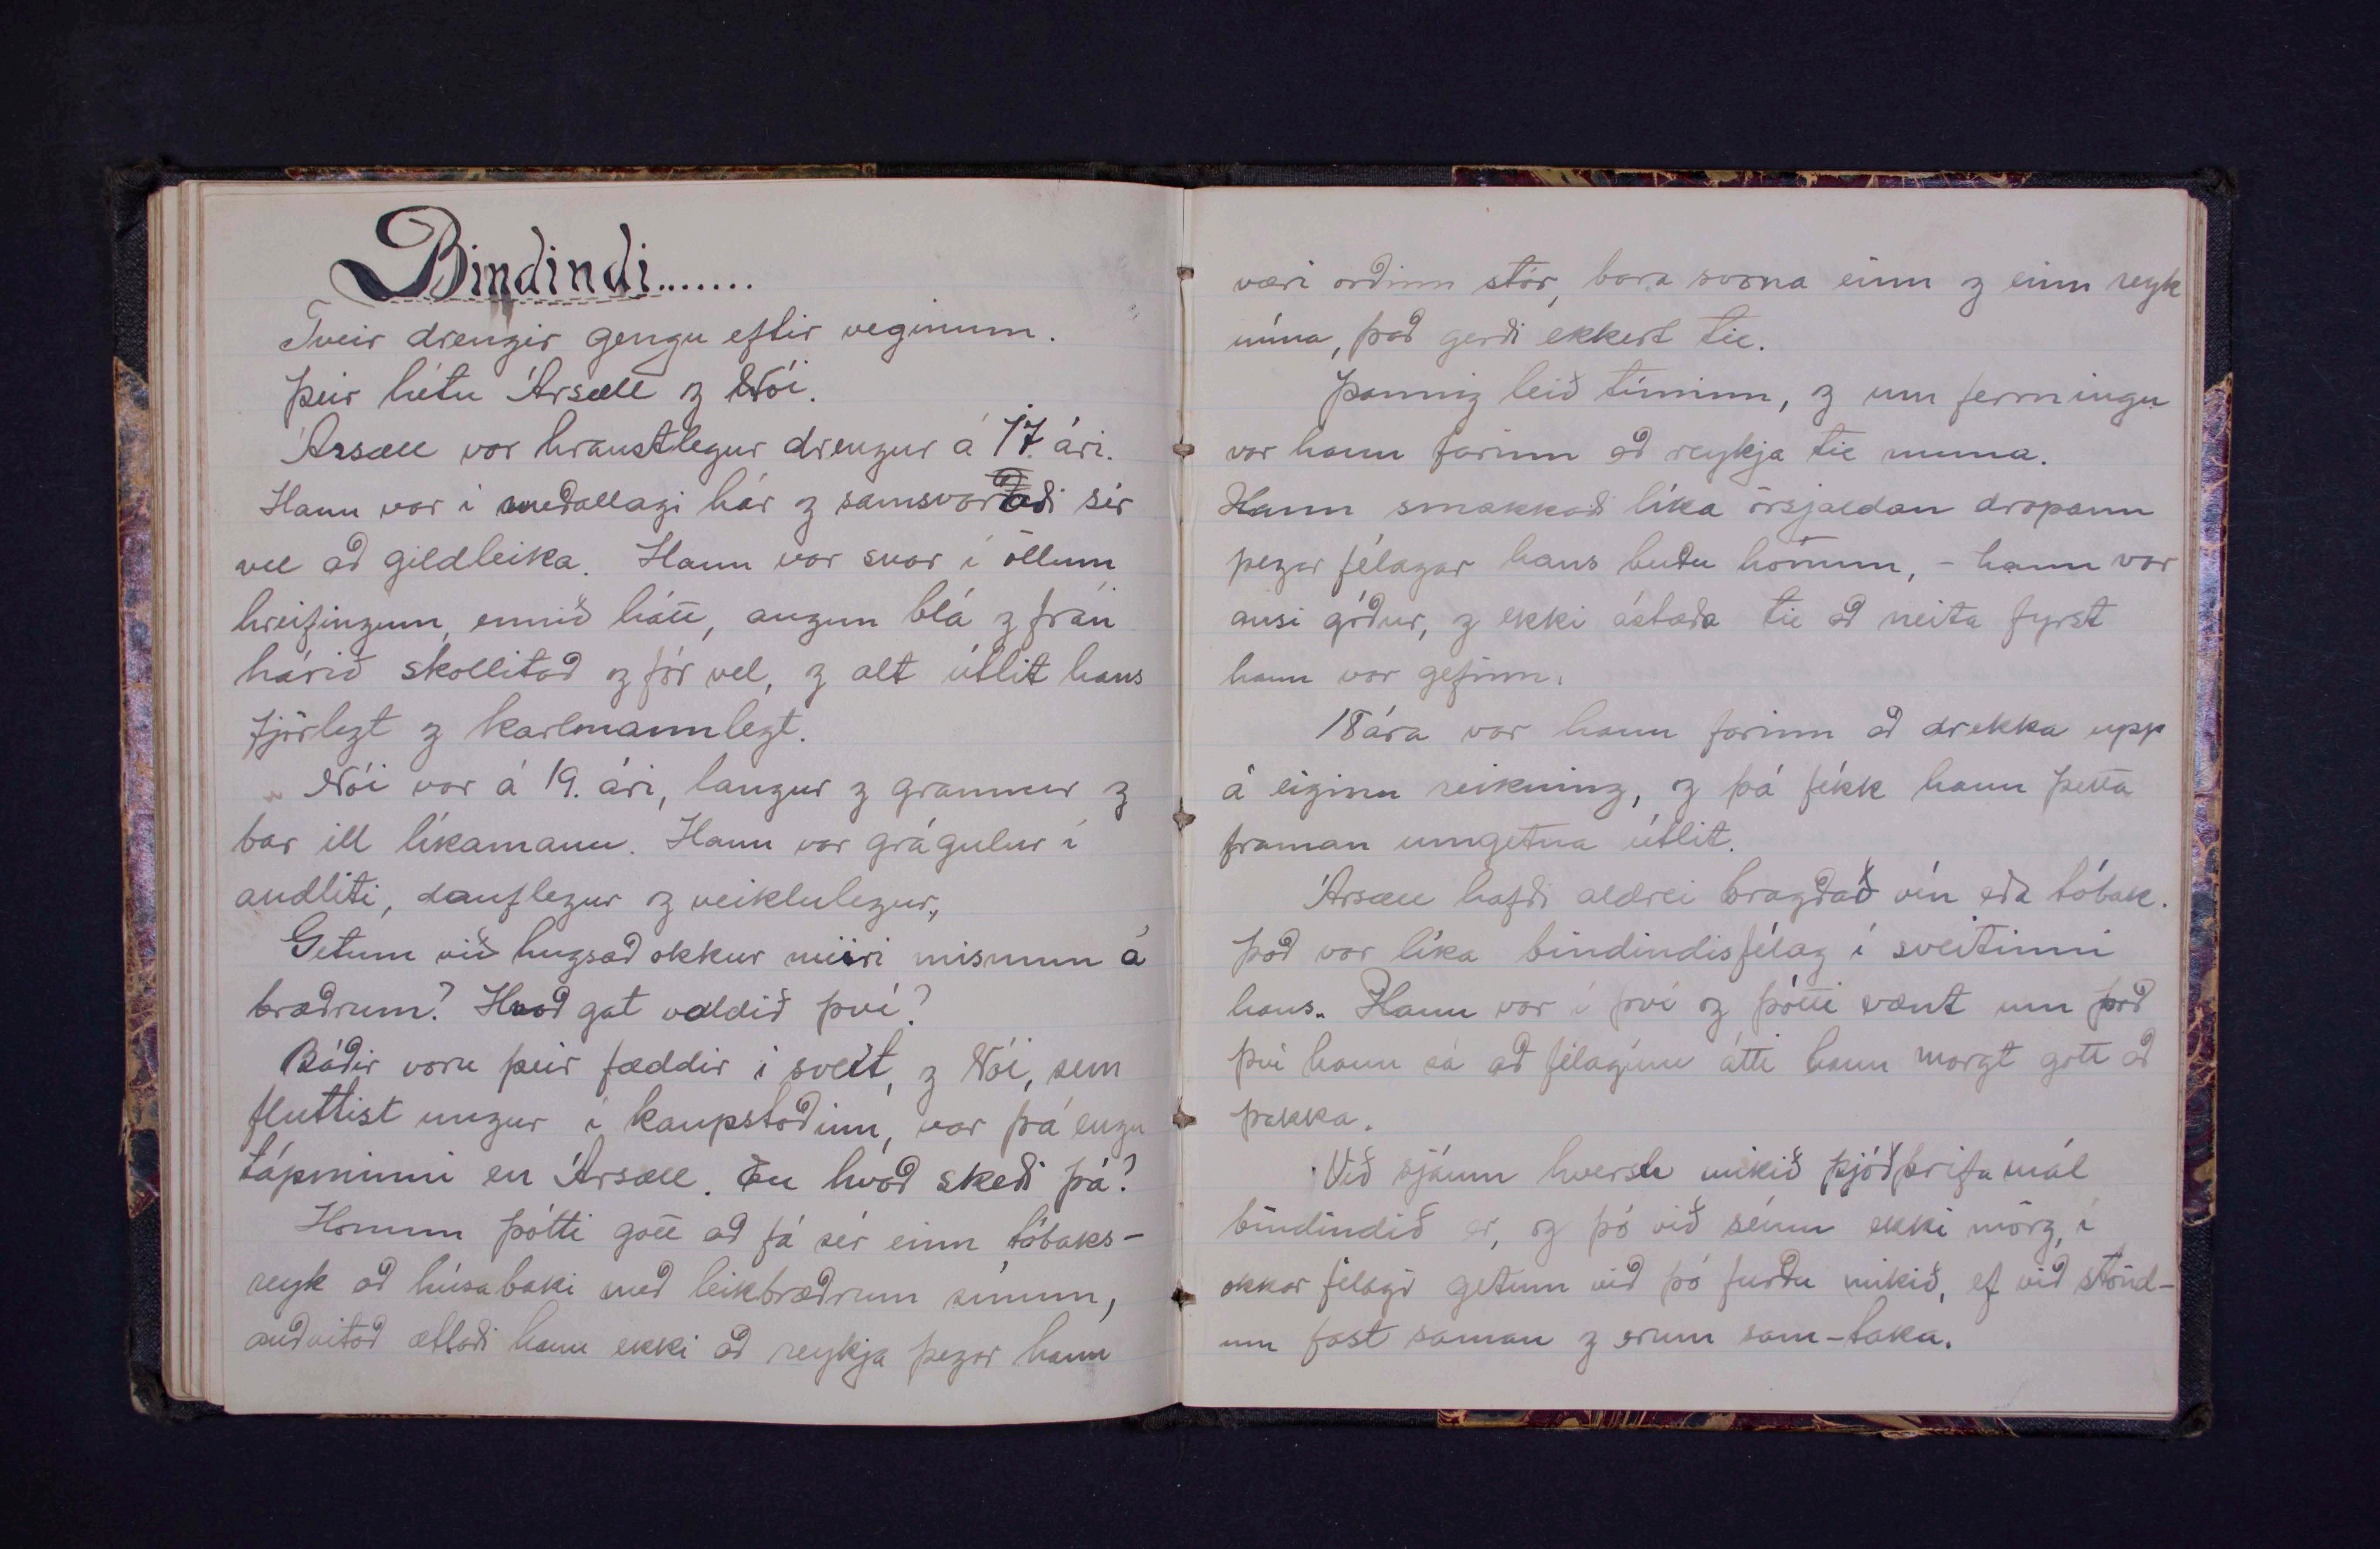 Bindindi.......
Tveir drengir gengu eftir veginum.
Þeir hétu Ársæll og Nói.
Ársæll var hraustlegur drengur á 17. ári.
Hann var í meðallagi hár og samsvaraði sér
vel að gildleika. Hann var snar í öllum
hreifingum, ennið hátt, augun blá og frán
hárið skollitað og fór vel, og alt útlit hans
fjörlegt og karlmannlegt.
Nói var á 19. ári, langur og grannur og
bar ill líkamann. Hann var grágulur í
andliti, dauflegur og veiklulegur.
Getum við hugsað okkur meiri mismun á
bræðrum? Hvað gat valdið því?
Báðir voru þeir fæddir í sveit, og Nói, sem
fluttist ungur í kaupstaðinn, var þá engu
tápminni en Ársæll. En hvað skeði þá?
Honum þótti gott að fá sér einn tóbaks-
reyk að húsabaki með leikbræðrum sínum,
auðvitað ætlaði hann ekki að reykja þegar hann
væri orðinn stór, bara svona einn og einn reyk
núna, það gerði ekkert til.
Þannig leið tíminn, og um fermingu
var hann farinn að reykja til muna.
Hann smakkaði líka örsjaldan dropann
þegar félagar hans buðu honum, - hann var
ansi góður, og ekki ástæða til að neita fyrst
hann var gefinn.
18 ára var hann farinn að drekka upp
á eiginn reikning, og þá fékk hann þetta
framan umgetna útlit.
Ársæll hafði aldrei bragðað vín eða tóbak.
Það var líka bindindisfélag í sveitinni
hans. Hann var í því og þótti vænt um það
því hann sá að félaginu átti hann margt gott að
þakka.
Við sjáum hversu mikið þjóðþrifamál
bindindið er, og þó við séum ekki mörg, í
okkar félagi getum við þó furðu mikið, ef við stönd-
um fast saman og erum sam-taka.